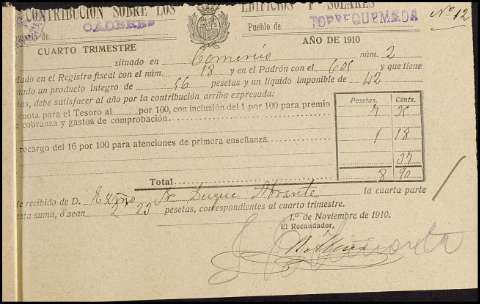 CONTRIBUCIÓN SOBRE LOS EDIFICIOS Y SOLARES
CACERES Pueblo de TORREQUEMADA Nº 12
CUARTO TRIMESTRE AÑO DE 1910
situado en Comercio núm. 2
en el Registro fiscal con el núm. 18 y en el Padrón con el y que tiene
un producto íntegro de 56 pesetas y un líquido imponible de 42
debe satisfacer al año por la contribución arriba expresada:
cuota para el Tesoro al por 100, con inclusión del 1 por 100 para premio
e cobranza y gastos de comprobación
Pesetas. Cents.
7
recargo del 16 por 100 para atenciones de primera enseñanza 1 18
Total 8 90
recibido de D. Exmo Sr Duque la cuarta parte
esta suma, ó sean 2 23 pesetas, correspondientes al cuarto trimestre.
1.º de Noviembre de 1910.
El Recaudador,